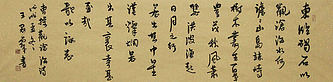 東臨碣石以
觀滄海水何
澹澹山島竦峙
樹木叢生百草
豐茂秋風蕭
瑟洪波涌起
日月之行
若出其中星
漢燦爛若
出其裏幸甚
至哉
歌以詠志